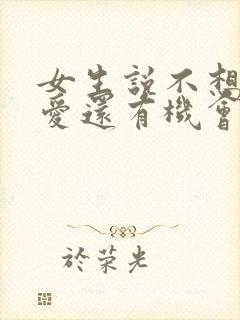 女生説不想
愛還有機會
於荣光